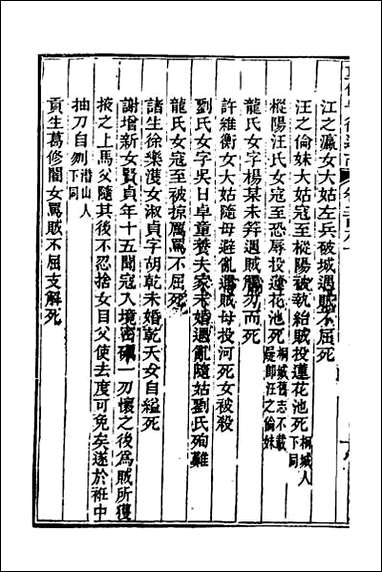 江之瀛女大姑左兵破城遇賊不屈死
汪之倫妹大姑寇至樅陽被執紿賊投蓮花池死桐城人下同
樅陽汪氏女寇至恐辱投蓮花池死桐城舊志不載疑即汪之倫妹
龍氏女字楊某未笄遇賊觸刃而死
許維衡女大姑隨母避亂遇賊母投河死女被殺
劉氏女字吳日卓童養夫家未婚遇亂隨姑劉氏殉難
龍氏女寇至被掠厲罵不屈死
諸生徐樂漢女淑貞字胡乾未婚乾夭女自縊死
謝增新女賢貞年十五聞寇入境密礪一刃懷之後為賊所獲
掖之上馬父隨其後不忍捨女目父使去度可免矣遂於袵中
抽刀自刎潛山人下同
貢生葛修閣女罵賊不屈支解死